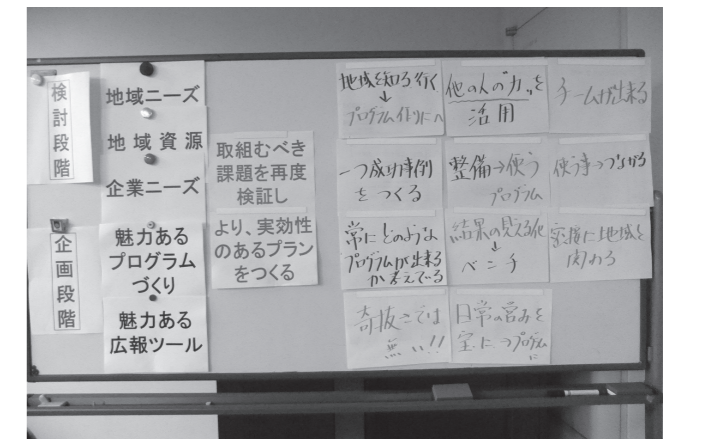 検討段階
地域ニーズ
地域資源
企業ニーズ
企画段階
魅力ある
プログラム
づくり
魅力ある
広報ツール
取組むべき
課題を再度
検証し
より、実効性
のあるプラン
をつくる
地域を知る行く
↓
プログラム作りにへ
他の人の"力"を
活用
チームが出来る
一つ成功事例
をつくる
整備→使う
プログラム
使う事→つながる
常にどのような
プログラムが出来る
か考えている
結果の見える化
↓
ベンチ
密接に地域を
関わる
奇抜こては
無い!!
日常の営みを
宝に→プログラム
に